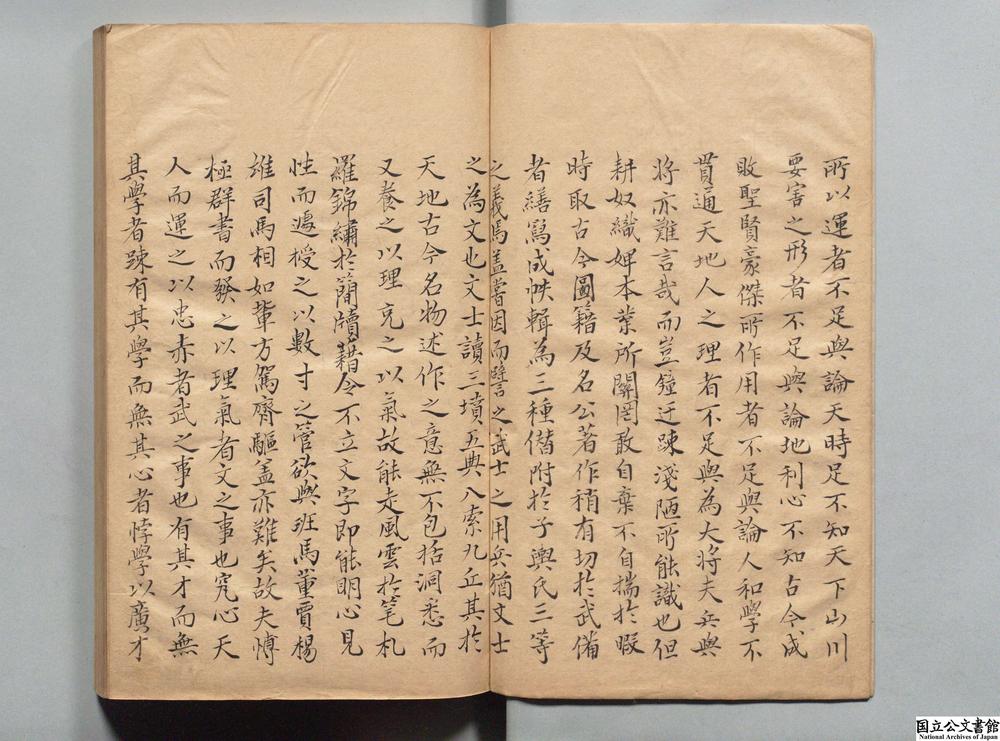 所以運者不足與論天時足不知天下山川
要害之形者不足與論地利心不知古今成
敗聖賢豪傑所作用者不足與論人和學不
貫通天地人之理者不足與為大將夫兵與
將亦難言哉而豈鐘迂踈淺陋所能識也但
耕奴織婢本業所關罔敢自棄不自揣於暇
時取古今圖籍及名公著作稍有切於武備
者繕寫成帙輯為三種僭附於子輿氏三等
之義焉盖嘗因而譬之武士之用兵猶文士
之為文也文士讀三墳五典八索九丘其於
天地古今名物述作之意無不包括洞悉而
又養之以理克之以氣故能走風雲於笔札
羅錦繡於簡牘藉令不立文字即能明心見
性而遽授之以數寸之管欲與班馬董賈楊
誰司馬相如輩方駕齊驅盖亦難矣故夫博
極群書而發之以理氣者文之事也究心天
人而運之以忠赤者武之事也有其才而無
其學者踈有其學而無其心者悖學以廣才
国立公文書館
National Archives of Japan